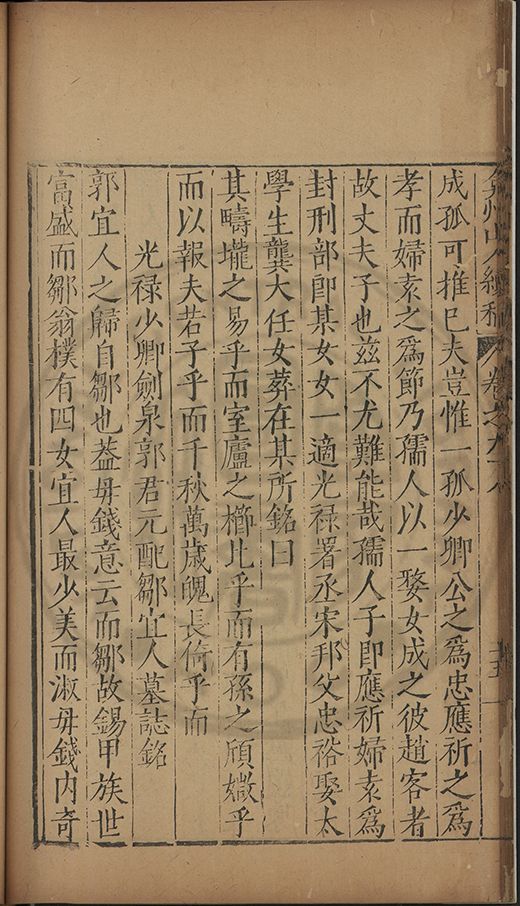 弇州山人續稿 卷之九十八 十五
成孤可推已夫豈惟一孤少卿公之為忠應祈之為
孝而婦素之為節乃孺人以一嫠女成之彼趙客者
故丈夫子也茲不尤難能哉孺人子即應祈婦素為
封刑部郎某女女一適光祿署丞宋邦父忠裕娶太
學生龔大任女葬在某所銘曰
其疇壠之易乎而室廬之櫛比乎而有孫之頎媺乎
而以報夫若子乎而千秋萬歲魄長倚乎而
光祿少卿劍泉郭君元配鄒宜人墓誌銘
郭宜人之歸自鄒也蓋毋錢意云而鄒故錫甲族世
富盛而鄒翁樸有四女宜人最少美而淑毋錢內奇